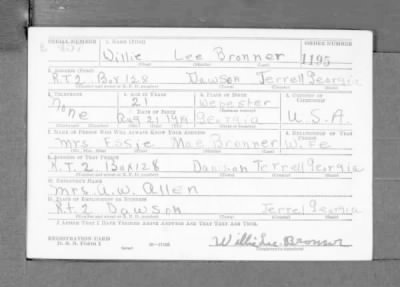 SERIAL NUMBER 1. NAME (Print) ORDER NUMBER
Willie Lee Bronner 1195
(First) (Middle) (Last)
2. ADDRESS (Print)
R.T. 2 Box 128 Dawson Terrell Georgia
3. TELEPHONE 4. AGE IN YEARS 5. PLACE OF BIRTH 6. COUNTRY OF CITIZENSHIP
None 21 Webester U.S.A.
DATE OF BIRTH
Aug 21 1919 Georgia
7. NAME OF PERSON WHO WILL ALWAYS KNOW YOUR ADDRESS 8. RELATIONSHIP OF THAT PERSON
Mrs. Essie Mae Bronner Wife
9. ADDRESS OF THAT PERSON
R.T. 2 Box 128 Dawson Terrell Georgia
10. EMPLOYER'S NAME
Mrs. U.W. Allen
11. PLACE OF EMPLOYMENT OR BUSINESS
R.t. 2 Dawson Terrell Georgia
I AFFIRM THAT I HAVE VERIFIED ABOVE ANSWERS AND THAT THEY ARE TRUE.
REGISTRATION CARD
D. S. S. FORM 1
Willie Lee Bronner
(Registrant's signature)